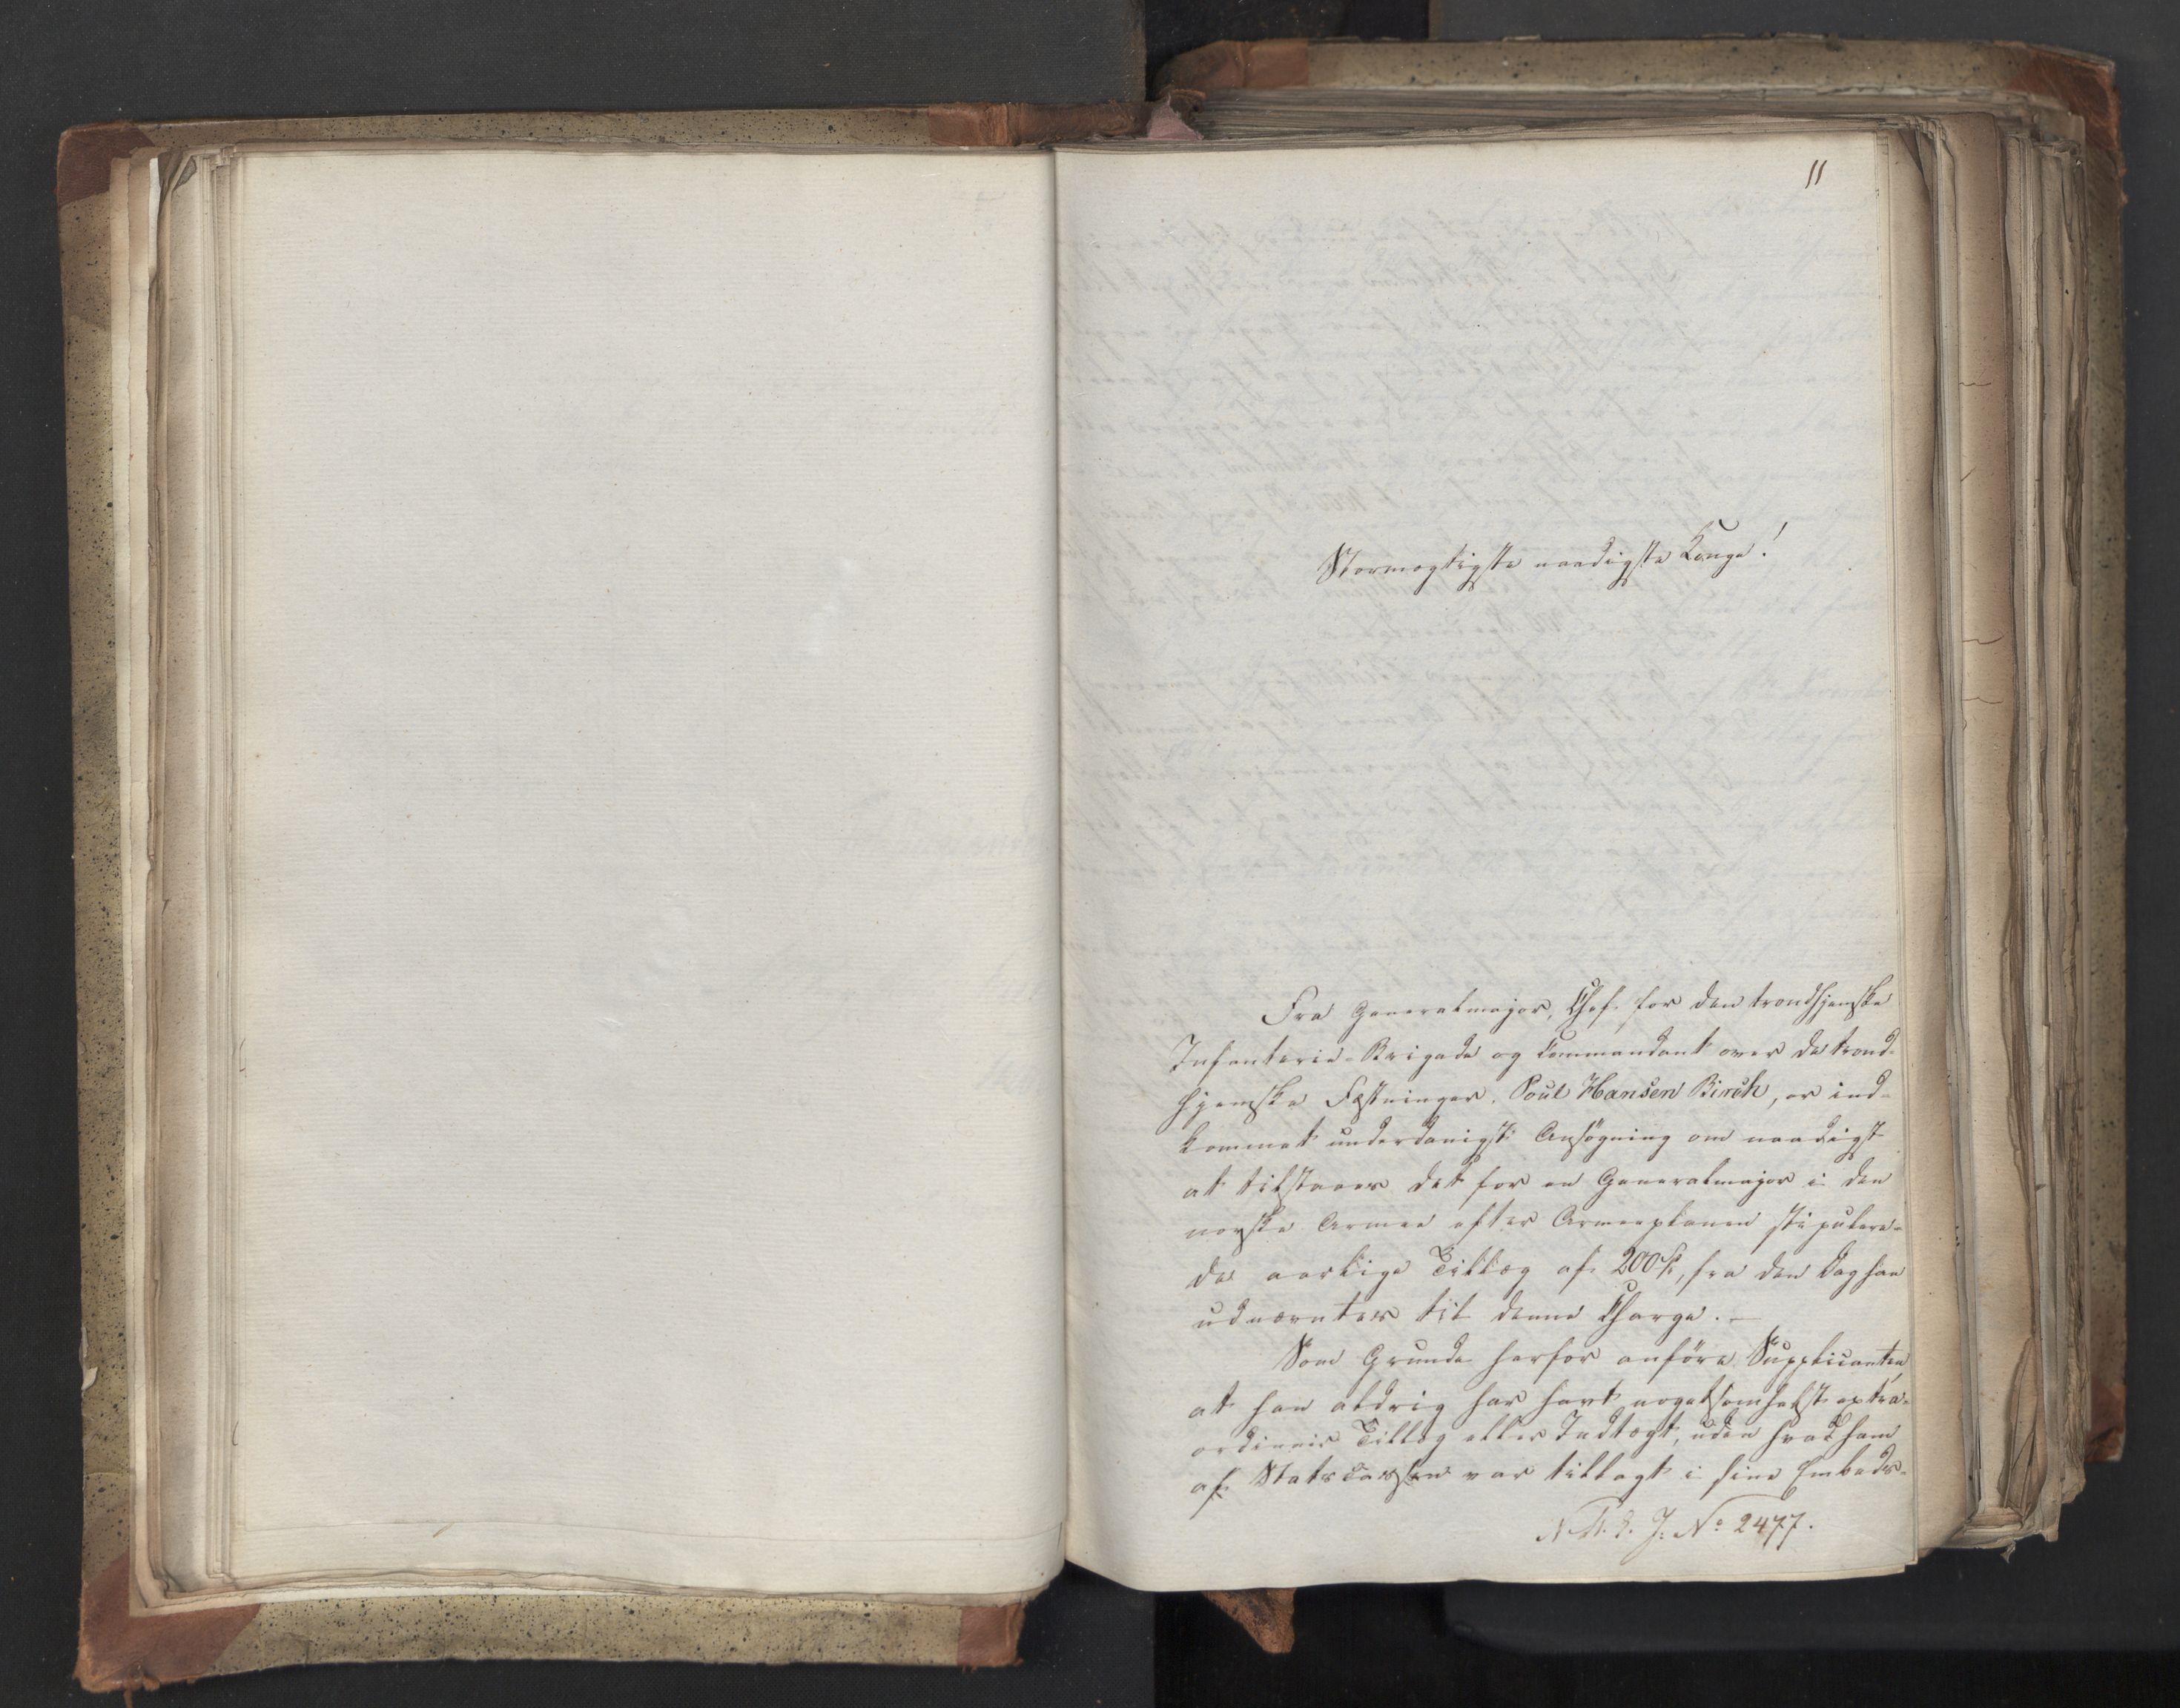 11
Stormægtigste naadigste Konge!
Fra Generalmajor, Chef for den trondhjemske
Infanterie-Brigade og Commandant over de trond-
hjemske Fæstninger, Poul Hansen Birch, er ind-
kommet underdanigst Ansøgning om naadigst
at tilstaaes det for en Generalmajor i den
norske Armee efter Armeeplanen stipulere-
de aarlige Tillæg af 200 Sp, fra den Dag han
udnævntes til denne Charge. —
Som Grunde herfor anføre Supplicanten,
at han aldrig har havt nogetsomhelst extra-
ordinair Tillæg eller Indtægt, uden hvad ham
af Statscassen var tillagt i sine Embeds-
J. No 2477.